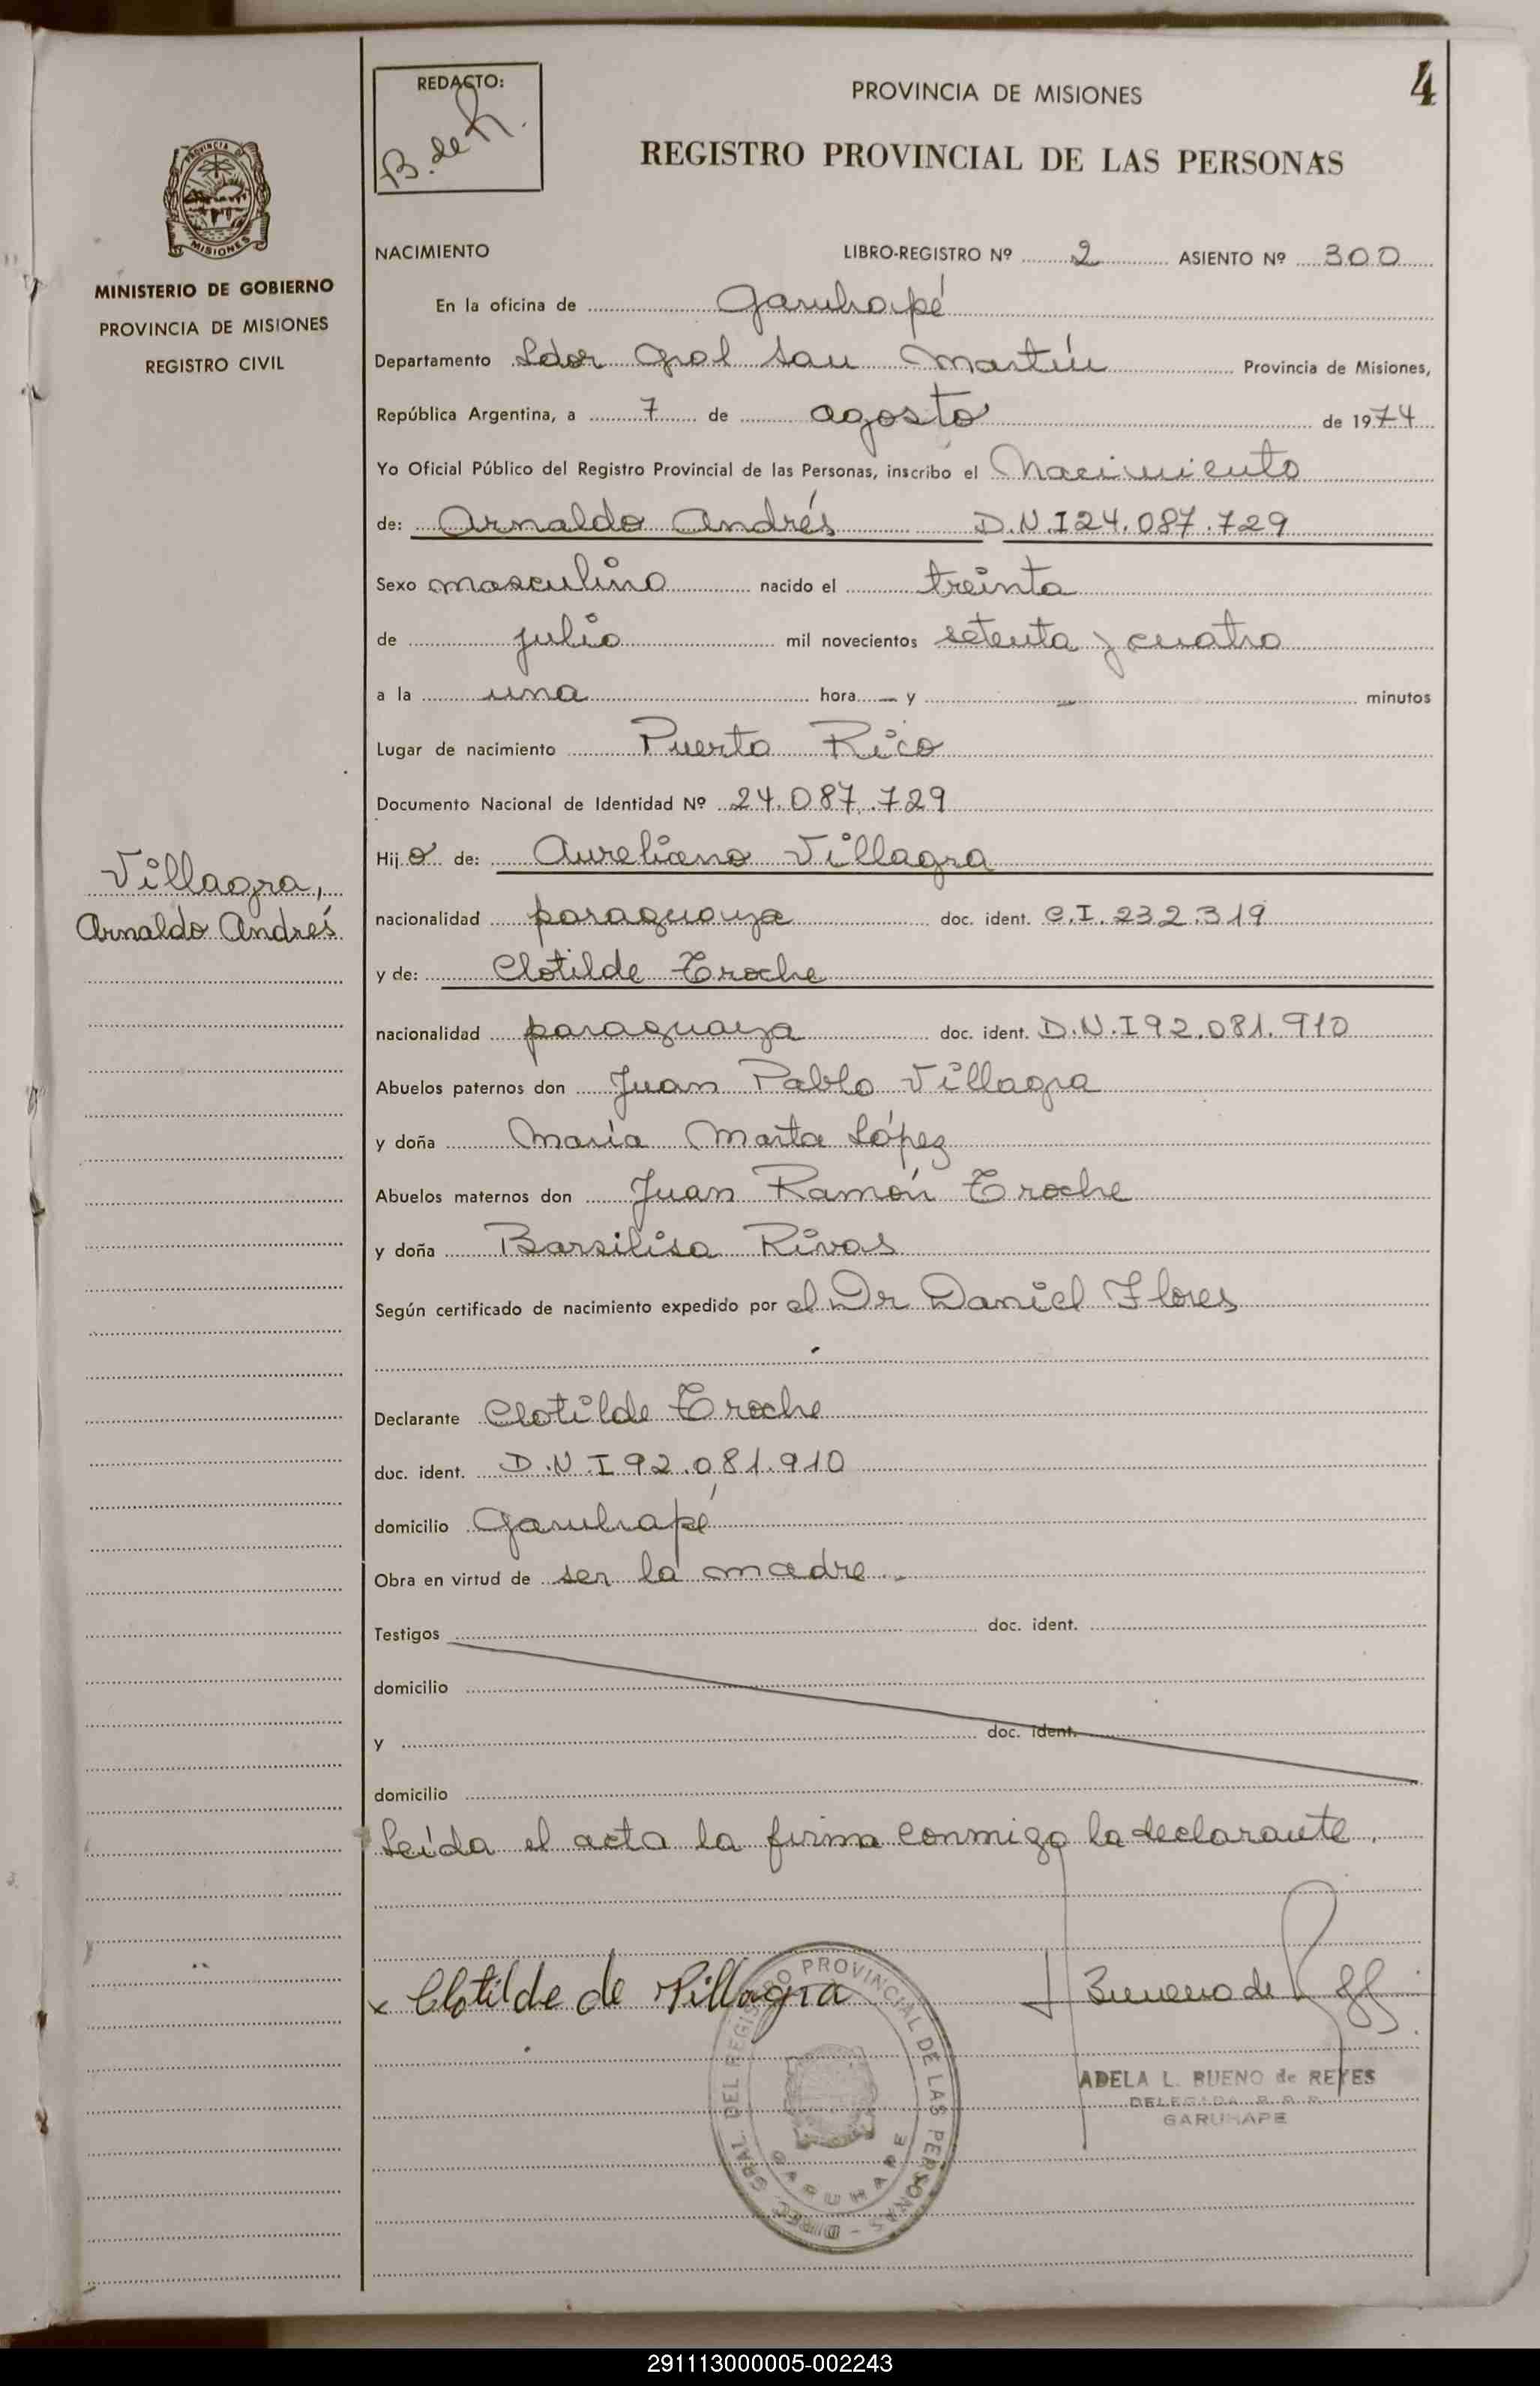 4
REDACTO:
B. de R.
PROVINCIA DE MISIONES
REGISTRO PROVINCIAL DE LAS PERSONAS
PROVINCIA DE
MISIONES
MINISTERIO DE GOBIERNO
PROVINCIA DE MISIONES
REGISTRO CIVIL
Villagra,
Arnaldo Andrés
NACIMIENTO LIBRO-REGISTRO Nº 2 ASIENTO Nº 300
En la oficina de Garuhapé
Departamento Ldor Gral San Martín Provincia de Misiones,
República Argentina, a 7 de agosto de 1974
Yo Oficial Público del Registro Provincial de las Personas, inscribo el Nacimiento
de: Arnaldo Andrés D.N.I 24.087.729
Sexo masculino nacido el treinta
de julio mil novecientos setenta y cuatro
a la una hora — y — minutos
Lugar de nacimiento Puerto Rico
Documento Nacional de Identidad Nº 24.087.729
Hijo de: Aureliano Villagra
nacionalidad paraguaya doc. ident. C.I. 232.319
y de: Clotilde Troche
nacionalidad paraguaya doc. ident. D.N.I 92.081.910
Abuelos paternos don Juan Pablo Villagra
y doña María Marta López
Abuelos maternos don Juan Ramón Troche
y doña Barsilisa Rivas
Según certificado de nacimiento expedido por el Dr Daniel Flores
Declarante Clotilde Troche
doc. ident. D.N.I 92.081.910
domicilio Garuhapé
Obra en virtud de ser la madre.-
Testigos doc. ident.
domicilio
y doc. ident.
domicilio
Leída el acta la firma conmigo la declarante.
x Clotilde de Villagra
Bueno de
DIREC. GRAL. DEL REGISTRO PROVINCIAL DE LAS PERSONAS -
GARUHAPE
ADELA L. BUENO de REYES
DELEGADA R. P. P.
GARUHAPE
291113000005-002243